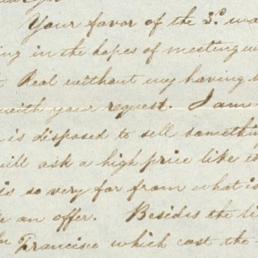 Your favor of the 3.º
ing in the hopes of meeting
Real without my having
with your request. I am
is disposed to sell something
will ask a high price like
is so very far from what is
an offer. Besides the
Francisco which cost the